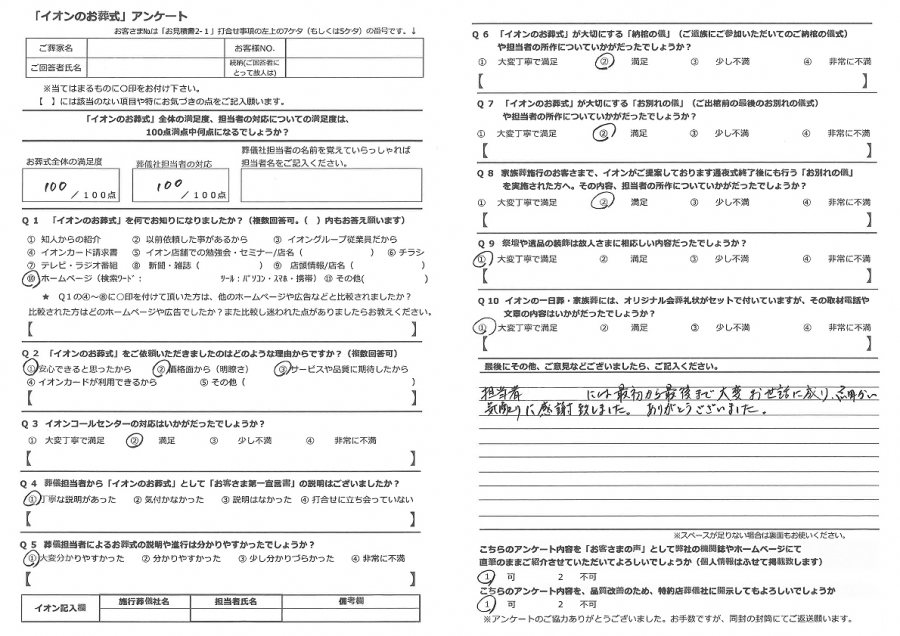 「イオンのお葬式」アンケート
お客さま№は「お見積書2-1」打合せ事項の左上の7ケタ（もしくは5ケタ）の番号です。↓
ご葬家名 お客様NO.
ご回答者氏名 続柄(ご回答者にとって故人は)
※当てはまるものに〇印をお付け下さい。
【 】には該当のない項目や特にお気づきの点をご記入願います。
「イオンのお葬式」全体の満足度、担当者の対応についての満足度は、
100点満点中何点になるでしょうか？
お葬式全体の満足度 葬儀社担当者の対応 葬儀社担当者の名前を覚えていらっしゃれば
担当者名をご記入ください。
100 ／100点 100 ／100点
Q１ 「イオンのお葬式」を何でお知りになりましたか？（複数回答可。（ ）内もお答え願います）
① 知人からの紹介 ② 以前依頼した事があるから ③ イオングループ従業員だから
④ イオンカード請求書 ⑤ イオン店舗での勉強会・セミナー/店名（ ） ⑥ チラシ
⑦ テレビ・ラジオ番組 ⑧ 新聞・雑誌（ ） ⑨ 店頭情報/店名（ ）
⑩ ホームページ（検索ﾜｰﾄﾞ： ﾂｰﾙ：ﾊﾟｿｺﾝ・ｽﾏﾎ・携帯）⑪ その他( )
★ Q１の④～⑩に〇印を付けて頂いた方は、他のホームページや広告などと比較されましたか？
比較された方はどのホームページや広告でしたか？また比較し迷われた点がありましたらお教えください。
【 】
Q２ 「イオンのお葬式」をご依頼いただきましたのはどのような理由からですか？（複数回答可）
①安心できると思ったから ②価格面から（明瞭さ） ③サービスや品質に期待したから
④ イオンカードが利用できるから ⑤ その他（ ）
【 】
Q３ イオンコールセンターの対応はいかがだったでしょうか？
① 大変丁寧で満足 ② 満足 ③ 少し不満 ④ 非常に不満
【 】
Q４ 葬儀担当者から「イオンのお葬式」として「お客さま第一宣言書」の説明はございましたか？
①丁寧な説明があった ② 気付かなかった ③ 説明はなかった ④ 打合せに立ち会っていない
【 】
Q５ 葬儀担当者によるお葬式の説明や進行は分かりやすかったでしょうか？
①大変分かりやすかった ② 分かりやすかった ③ 少し分かりづらかった ④ 非常に不満
【 】
イオン記入欄 施行葬儀社名 担当者氏名 備考欄
Q６ 「イオンのお葬式」が大切にする「納棺の儀」（ご遺族にご参加いただいてのご納棺の儀式）
や担当者の所作についていかがだったでしょうか？
① 大変丁寧で満足 ② 満足 ③ 少し不満 ④ 非常に不満
【 】
Q７ 「イオンのお葬式」が大切にする「お別れの儀」（ご出棺前の最後のお別れの儀式）
や担当者の所作についていかがだったでしょうか？
① 大変丁寧で満足 ② 満足 ③ 少し不満 ④ 非常に不満
【 】
Q８ 家族葬施行のお客さまで、イオンがご提案しております通夜式終了後にも行う「お別れの儀」
を実施された方へ。その内容、担当者の所作についていかがだったでしょうか？
① 大変丁寧で満足 ② 満足 ③ 少し不満 ④ 非常に不満
【 】
Q９ 祭壇や遺品の装飾は故人さまに相応しい内容だったでしょうか？
①大変丁寧で満足 ② 満足 ③ 少し不満 ④ 非常に不満
【 】
Q10 イオンの一日葬・家族葬には、オリジナル会葬礼状がセットで付いていますが、その取材電話や
文章の内容はいかがだったでしょうか？
①大変丁寧で満足 ② 満足 ③ 少し不満 ④ 非常に不満
【 】
最後にその他、ご意見などございましたら、ご記入ください。
担当者 には最初から最後まで大変お世話に成り、細かい
気配りに感謝致しました。ありがとうございました。
※スペースが足りない場合は裏面もお使いください。
こちらのアンケート内容を「お客さまの声」として弊社の機関誌やホームページにて
直筆のままご紹介させていただいてよろしいでしょうか（個人情報はふせて掲載致します）
1 可 2 不可
こちらのアンケート内容を、品質改善のため、特約店葬儀社に開示してもよろしいでしょうか
1 可 2 不可
※アンケートのご協力ありがとうございました。お手数ですが、同封の封筒にてご返送願います。